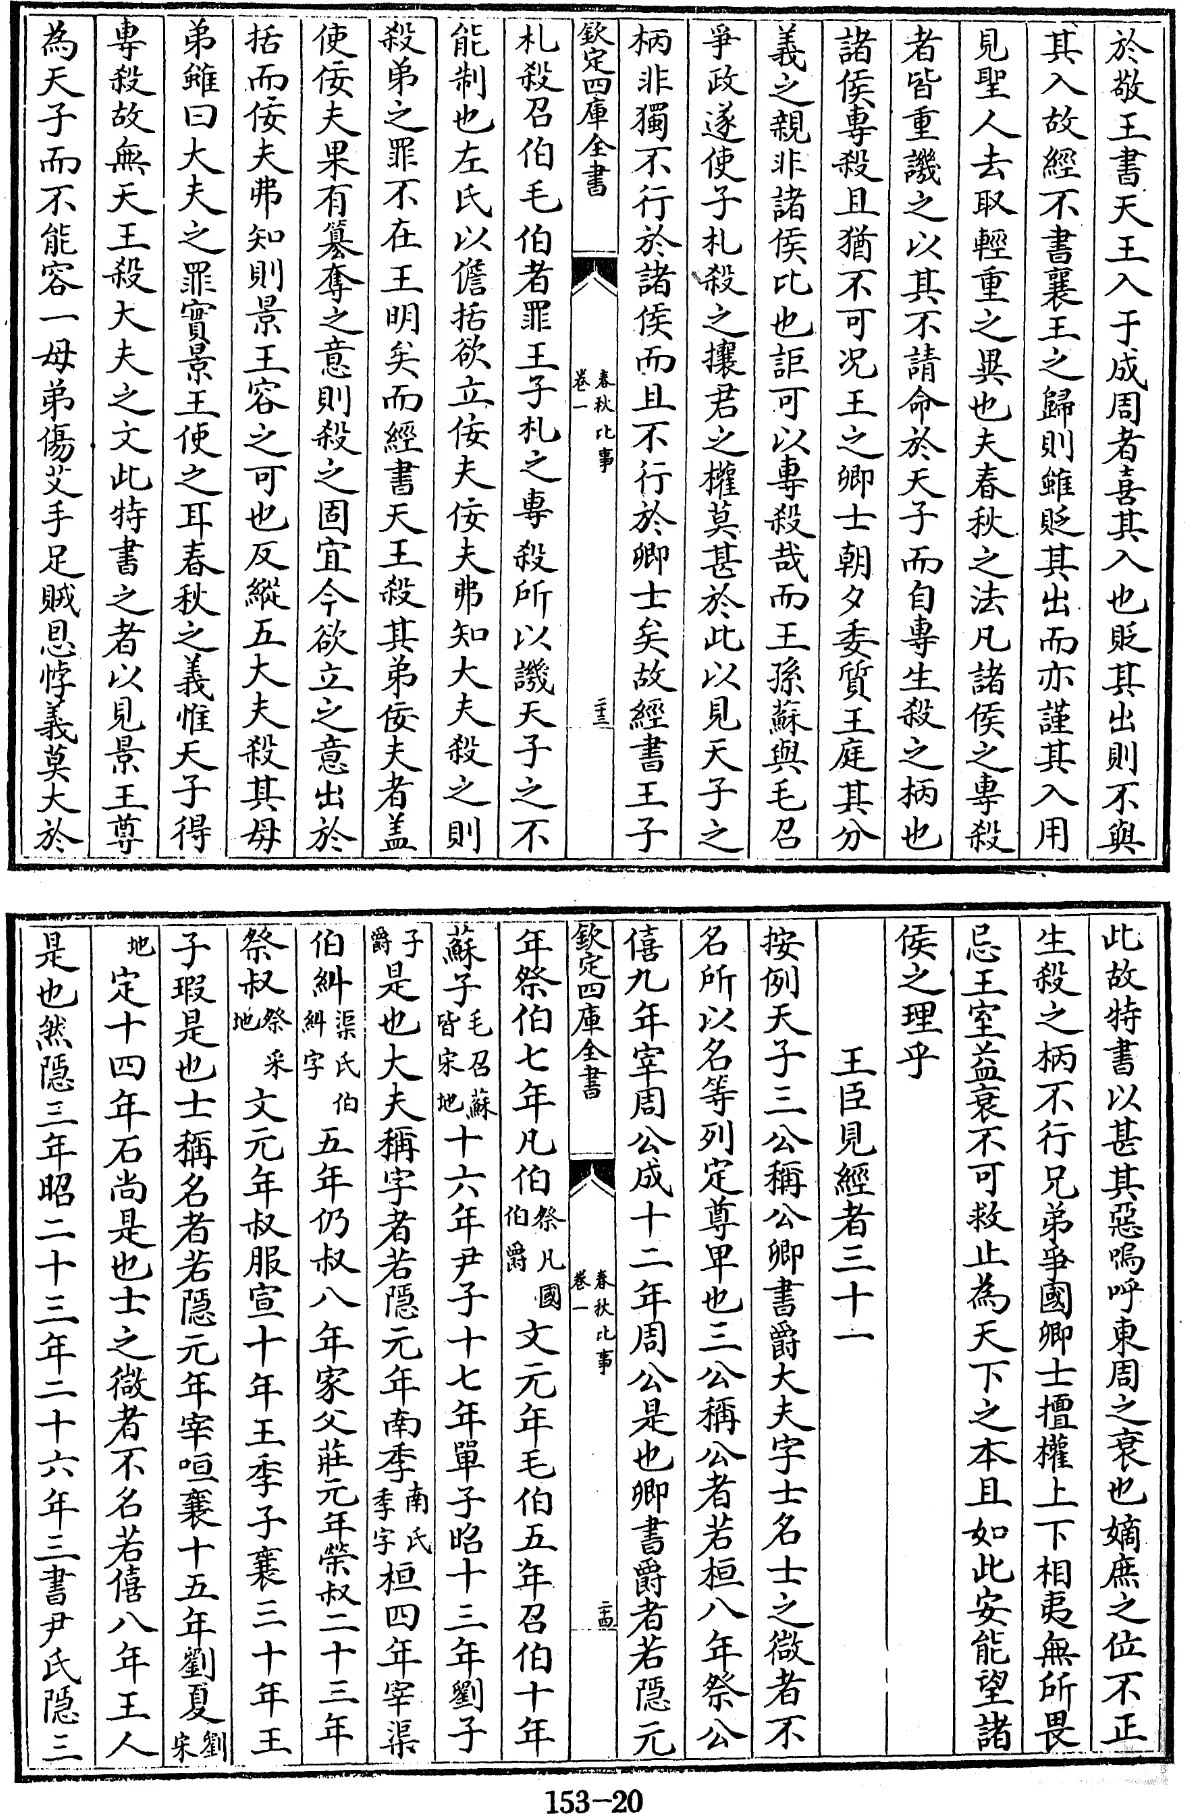 於敬王書天王入于成周者喜其入也貶其出則不與
其入故經不書襄王之歸則雖貶其出而亦謹其入用
見聖人去取輕重之異也夫春秋之法凡諸侯之專殺
者皆重譏之以其不請命於天子而自專生殺之柄也
諸侯專殺且猶不可况王之卿士朝夕委質王庭其分
義之親非諸侯比也詎可以專殺哉而王孫蘇與毛召
爭政遂使子札殺之攘君之權莫甚於此以見天子之
柄非獨不行於諸侯而且不行於卿士矣故經書王子
欽定四庫全書
春秋比事
卷一
二十三
札殺召伯毛伯者罪王子札之專殺所以譏天子之不
能制也左氏以儋括欲立佞夫佞夫弗知大夫殺之則
殺弟之罪不在王明矣而經書天王殺其弟佞夫者盖
使佞夫果有簒奪之意則殺之固宜今欲立之意出於
括而佞夫弗知則景王容之可也反縱五大夫殺其母
弟雖曰大夫之罪實景王使之耳春秋之義惟天子得
專殺故無天王殺大夫之文此特書之者以見景王尊
為天子而不能容一母弟傷艾手足賊恩悖義莫大於
此故特書以甚其惡嗚呼東周之衰也嫡庶之位不正
生殺之柄不行兄弟爭國卿士擅權上下相夷無所畏
忌王室益衰不可救止為天下之本且如此安能望諸
侯之理乎
王臣見經者三十一
按例天子三公稱公卿書爵大夫字士名士之微者不
名所以名等列定尊卑也三公稱公者若桓八年祭公
僖九年宰周公成十二年周公是也卿書爵者若隱元
欽定四庫全書
春秋比事
卷一
二十四
年祭伯七年凡伯祭凡國伯爵文元年毛伯五年召伯十年
蘇子毛召蘇皆宋地十六年尹子十七年單子昭十三年劉子
子爵是也大夫稱字者若隱元年南季南氏季字桓四年宰渠
伯糾渠氏伯糾字五年仍叔八年家父莊元年榮叔二十三年
祭叔祭采地文元年叔服宣十年王季子襄三十年王
子瑕是也士稱名者若隱元年宰咺襄十五年劉夏劉宋
地定十四年石尚是也士之微者不名若僖八年王人
是也然隱三年昭二十三年二十六年三書尹氏隱三
153-20